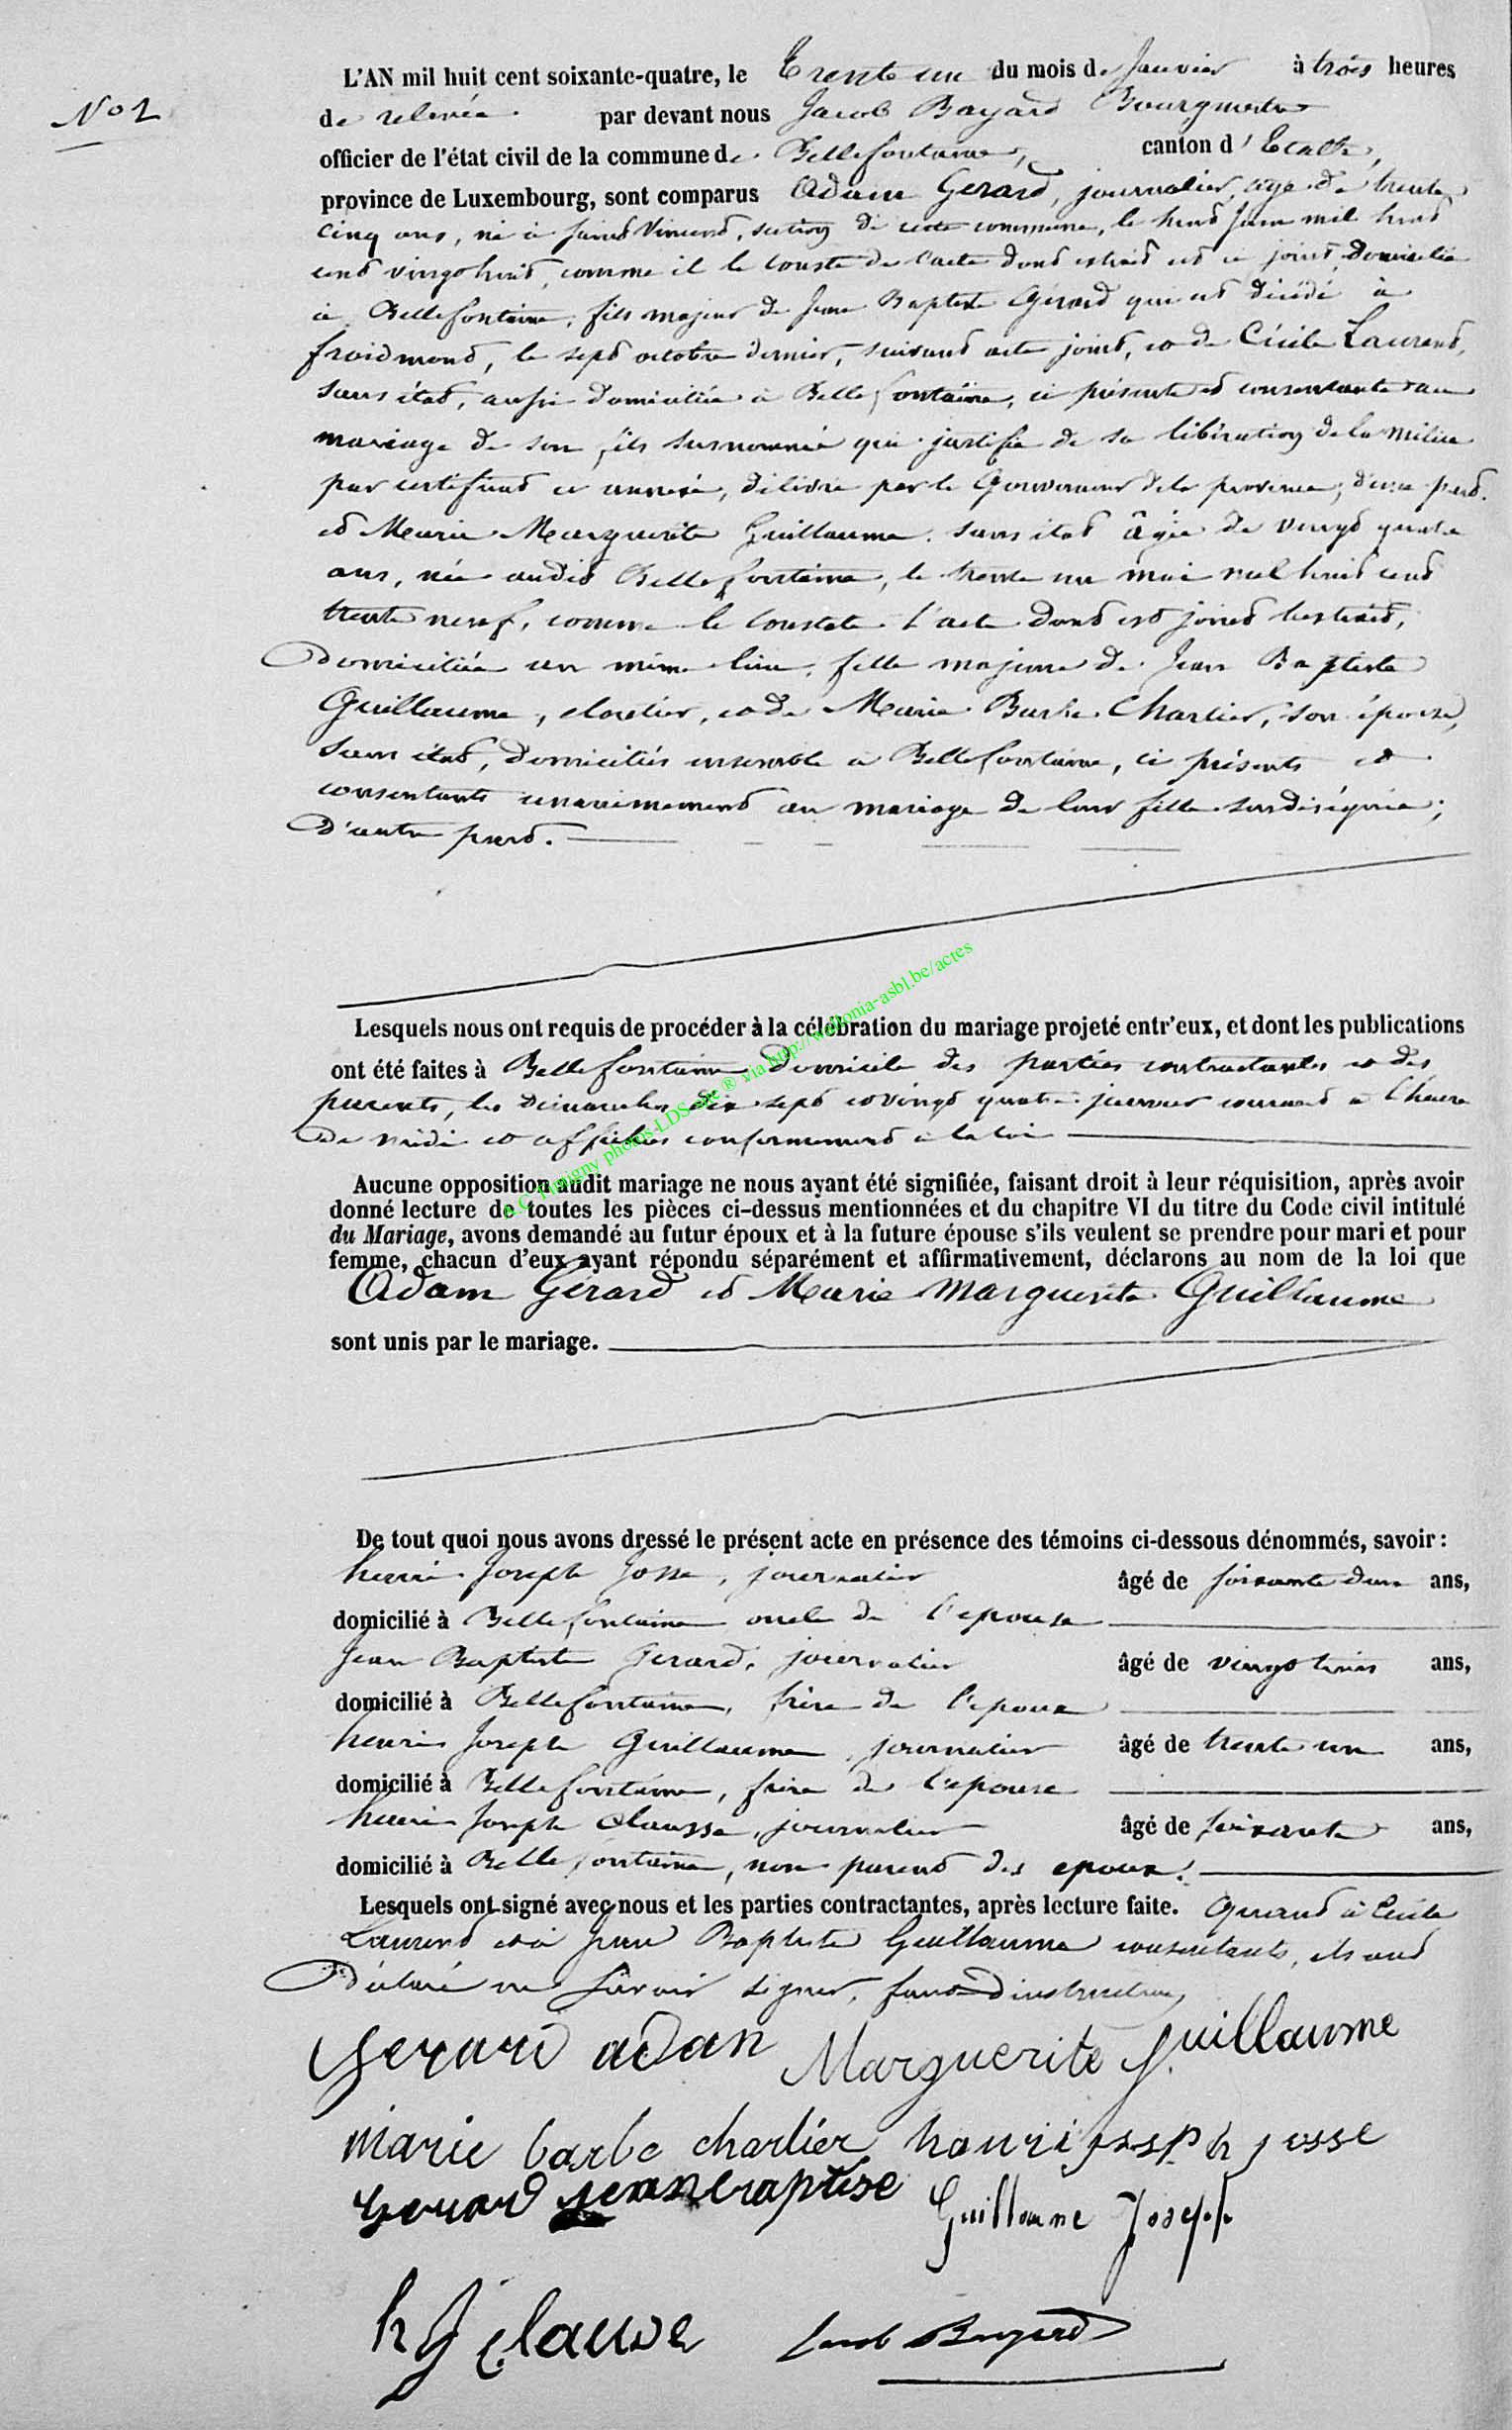 L'AN mil huit cent soixante-quatre, le Trente un du mois de Janvier à trois heures
N° 2
de relevée par devant nous Jacob Bayard Bourgmestre
officier de l'état civil de la commune de Bellefontaine, canton d'Etalle,
province de Luxembourg, sont comparus Adam Gérard, journalier, âgé de trente
cinq ans, né à Saint Vincent, section de cette commune, le huit Juin mil huit
cent vingt huit, comme il le conste de l'acte dont extrait est ci joint, domicilié
à Bellefontaine, fils majeur de Jean Baptiste Gérard qui est décédé à
froidmont, le sept octobre dernier, suivant acte joint, et de Cécile Laurent,
sans état, aussi domiciliée à Bellefontaine, ci présente et consentante au
mariage de son fils susnommé qui justifie de sa libération de la milice
par certificat ci annexé, délivré par le Gouverneur de la province, d'une part.
et Marie Marguerite Guillaume, sans état âgée de vingt quatre
ans, née audit Bellefontaine, le trente un mai mil huit cent
trente neuf, comme le constate l'acte dont est joint l'extrait,
domiciliée au même lieu, fille majeure de Jean Baptiste
Guillaume, cloutier, et de Marie Barbe Charlier, son épouse,
sans état, domiciliés ensemble à Bellefontaine, ci présents et
consentants unanimement au mariage de leur fille susdésignée;
d'autre part.
Lesquels nous ont requis de procéder à la célébration du mariage projeté entr'eux, et dont les publications
ont été faites à Bellefontaine domicile des parties contractantes et des
parents, les dimanches dix sept et vingt quatre janvier courant à l'heure
de midi et affiches conformément à la loi
A.C. Tintigny photos-LDS-site ® via http://wallonia-asbl.be/actes
Aucune opposition audit mariage ne nous ayant été signifiée, faisant droit à leur réquisition, après avoir
donné lecture de toutes les pièces ci-dessus mentionnées et du chapitre VI du titre du Code civil intitulé
du Mariage, avons demandé au futur époux et à la future épouse s'ils veulent se prendre pour mari et pour
femme, chacun d'eux ayant répondu séparément et affirmativement, déclarons au nom de la loi que
Adam Gérard et Marie Marguerite Guillaume
sont unis par le mariage.
De tout quoi nous avons dressé le présent acte en présence des témoins ci-dessous dénommés, savoir :
henri Joseph Josse, journalier âgé de soixante deux ans,
domicilié à Bellefontaine oncle de l'epouse
Jean Baptiste Gerard, journalier âgé de vingt trois ans,
domicilié à Bellefontaine, frère de l'epoux
henri Joseph Guillaume, journalier âgé de trente un ans,
domicilié à Bellefontaine, frère de l'epouse
henri Joseph Clausse, journalier âgé de soixante ans,
domicilié à Bellefontaine, non parent des epoux.
Lesquels ont signé avec nous et les parties contractantes, après lecture faite. Quant à Cécile
Laurent et à Jean Baptiste Guillaume consentants, ils ont
déclaré ne savoir signer, faute d'instruction
Gerard adan Marguerite Guillaume
marie barbe charlier hanri josep h josse
Gerard jeanbaptise Guillaume Joseph
h J clause Jacob Bayard